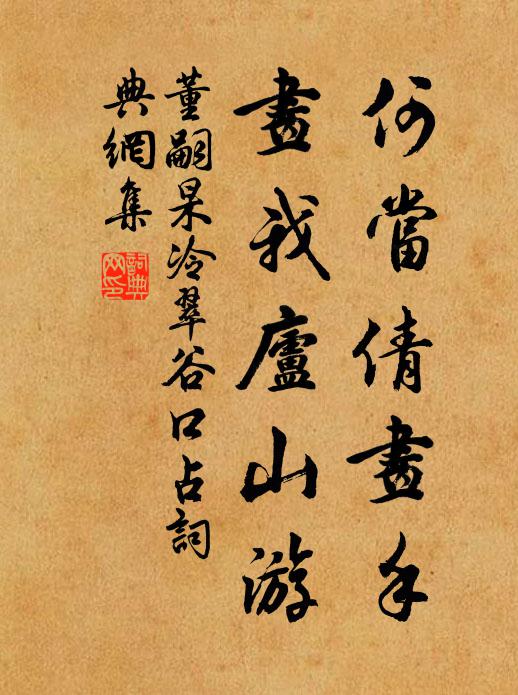 何當倩畫手
畫我廬山游
董嗣杲冷翠谷口占詞
典網集
詞典
网印